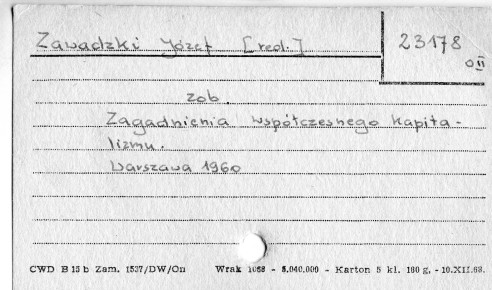 Zawadzki Józef [red.] 23178
O II
zob.
Zagadnienia współczesnego kapita-
lizmu.
Warszawa 1960
CWD B 15 b Zam. 1537/DW/On Wrak 1068 - 5.040.000 - Karton 5 kl. 180 g, - 10.XII.68.